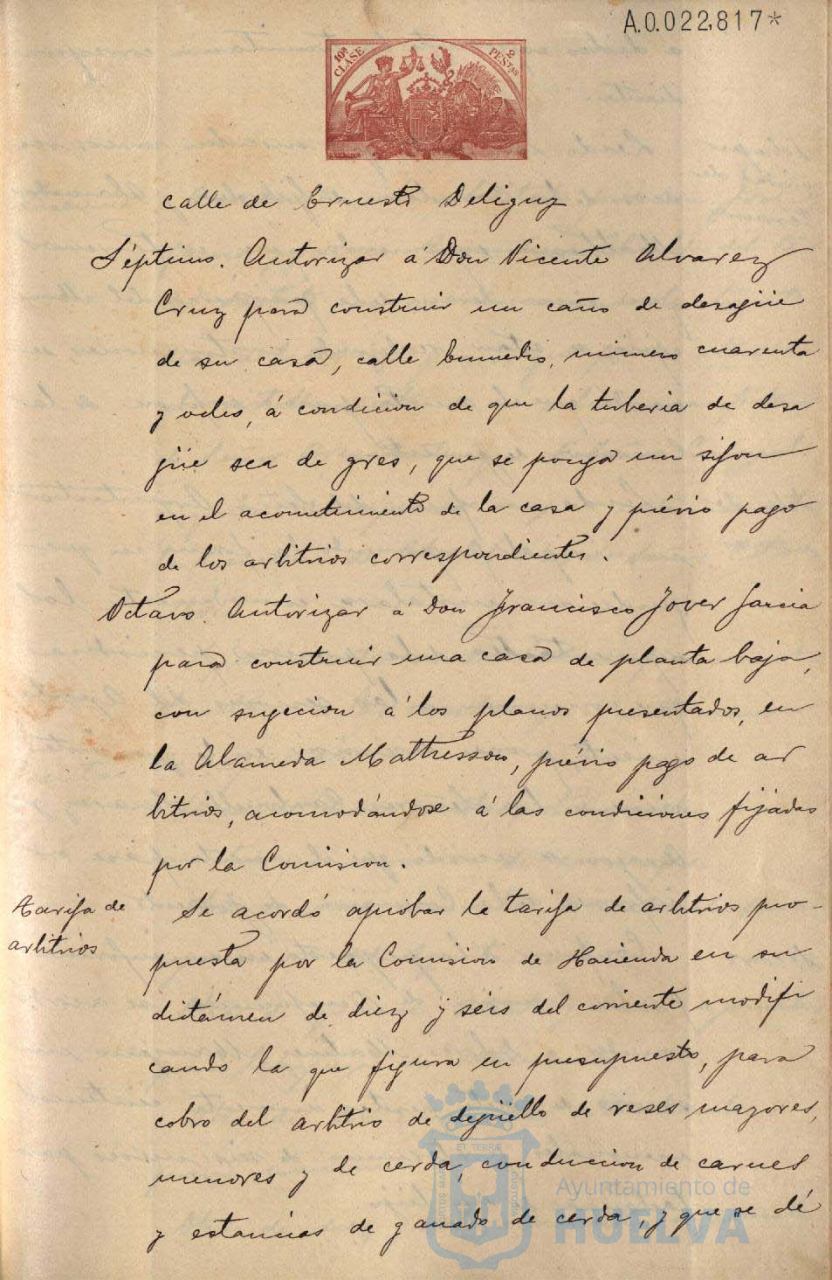 A.0.022,817*
10ª CLASE
2 PESETAS
calle de Ernesto Deligny
Séptimo. Autorizar á Don Vicente Alvarez
Cruz para construir un caño de desagüe
de su casa, calle Enmedio, número cuarenta
y ocho, á condicion de que la tuberia de desa
güe sea de gres, que se ponga un sifon
en el acometimiento de la casa y prévio pago
de los arbitrios correspondientes.
Octavo. Autorizar á Don Francisco Jover Garcia
para construir una casa de planta baja,
con sugecion á los planos presentados, en
la Alameda Mathesson, prévio pago de ar
bitrios, acomodándose á las condiciones fijadas
por la Comision.
Tarifa de
arbitrios
Se acordó aprobar la tarifa de arbitrios pro-
puesta por la Comision de Hacienda en su
dictámen de diez y seis del corriente modifi
cando la que figura en presupuesto, para
cobro del arbitrio de degüello de reses mayores,
menores y de cerda, conduccion de carnes
y estancias de ganado de cerda, y que se dé
Ayuntamiento de
HUELVA